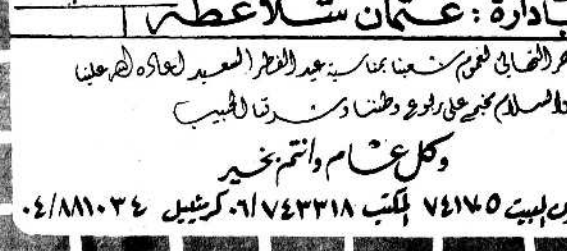 بادارة : عثمان شلاعطه
حر التهاني لعموم شعبنا بمناسبة عيد الفطر السعيد لعاده الله علينا
والسلام يخيم على ربوع وطننا وشرقنا الحبيب
وكل عام وانتم بخير
البيت ٧٤١٧٥ المكتب ٠٦/٧٤٣٣١٨ كرميئيل ٠٤/٨٨١٠٣٤